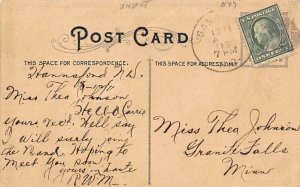 POST CARD
THIS SPACE FOR CORRESPONDENCE.
THIS SPACE FOR ADDRESS ONLY.
Hannaford N.D.
Miss Thea Johnson
Hello Carrie
Yours rec'd. Will say
I will surely
the Band. Hoping to
Meet You soon
yours in haste
R.W.M.
Miss Thea Johnson
Granite Falls
Minn